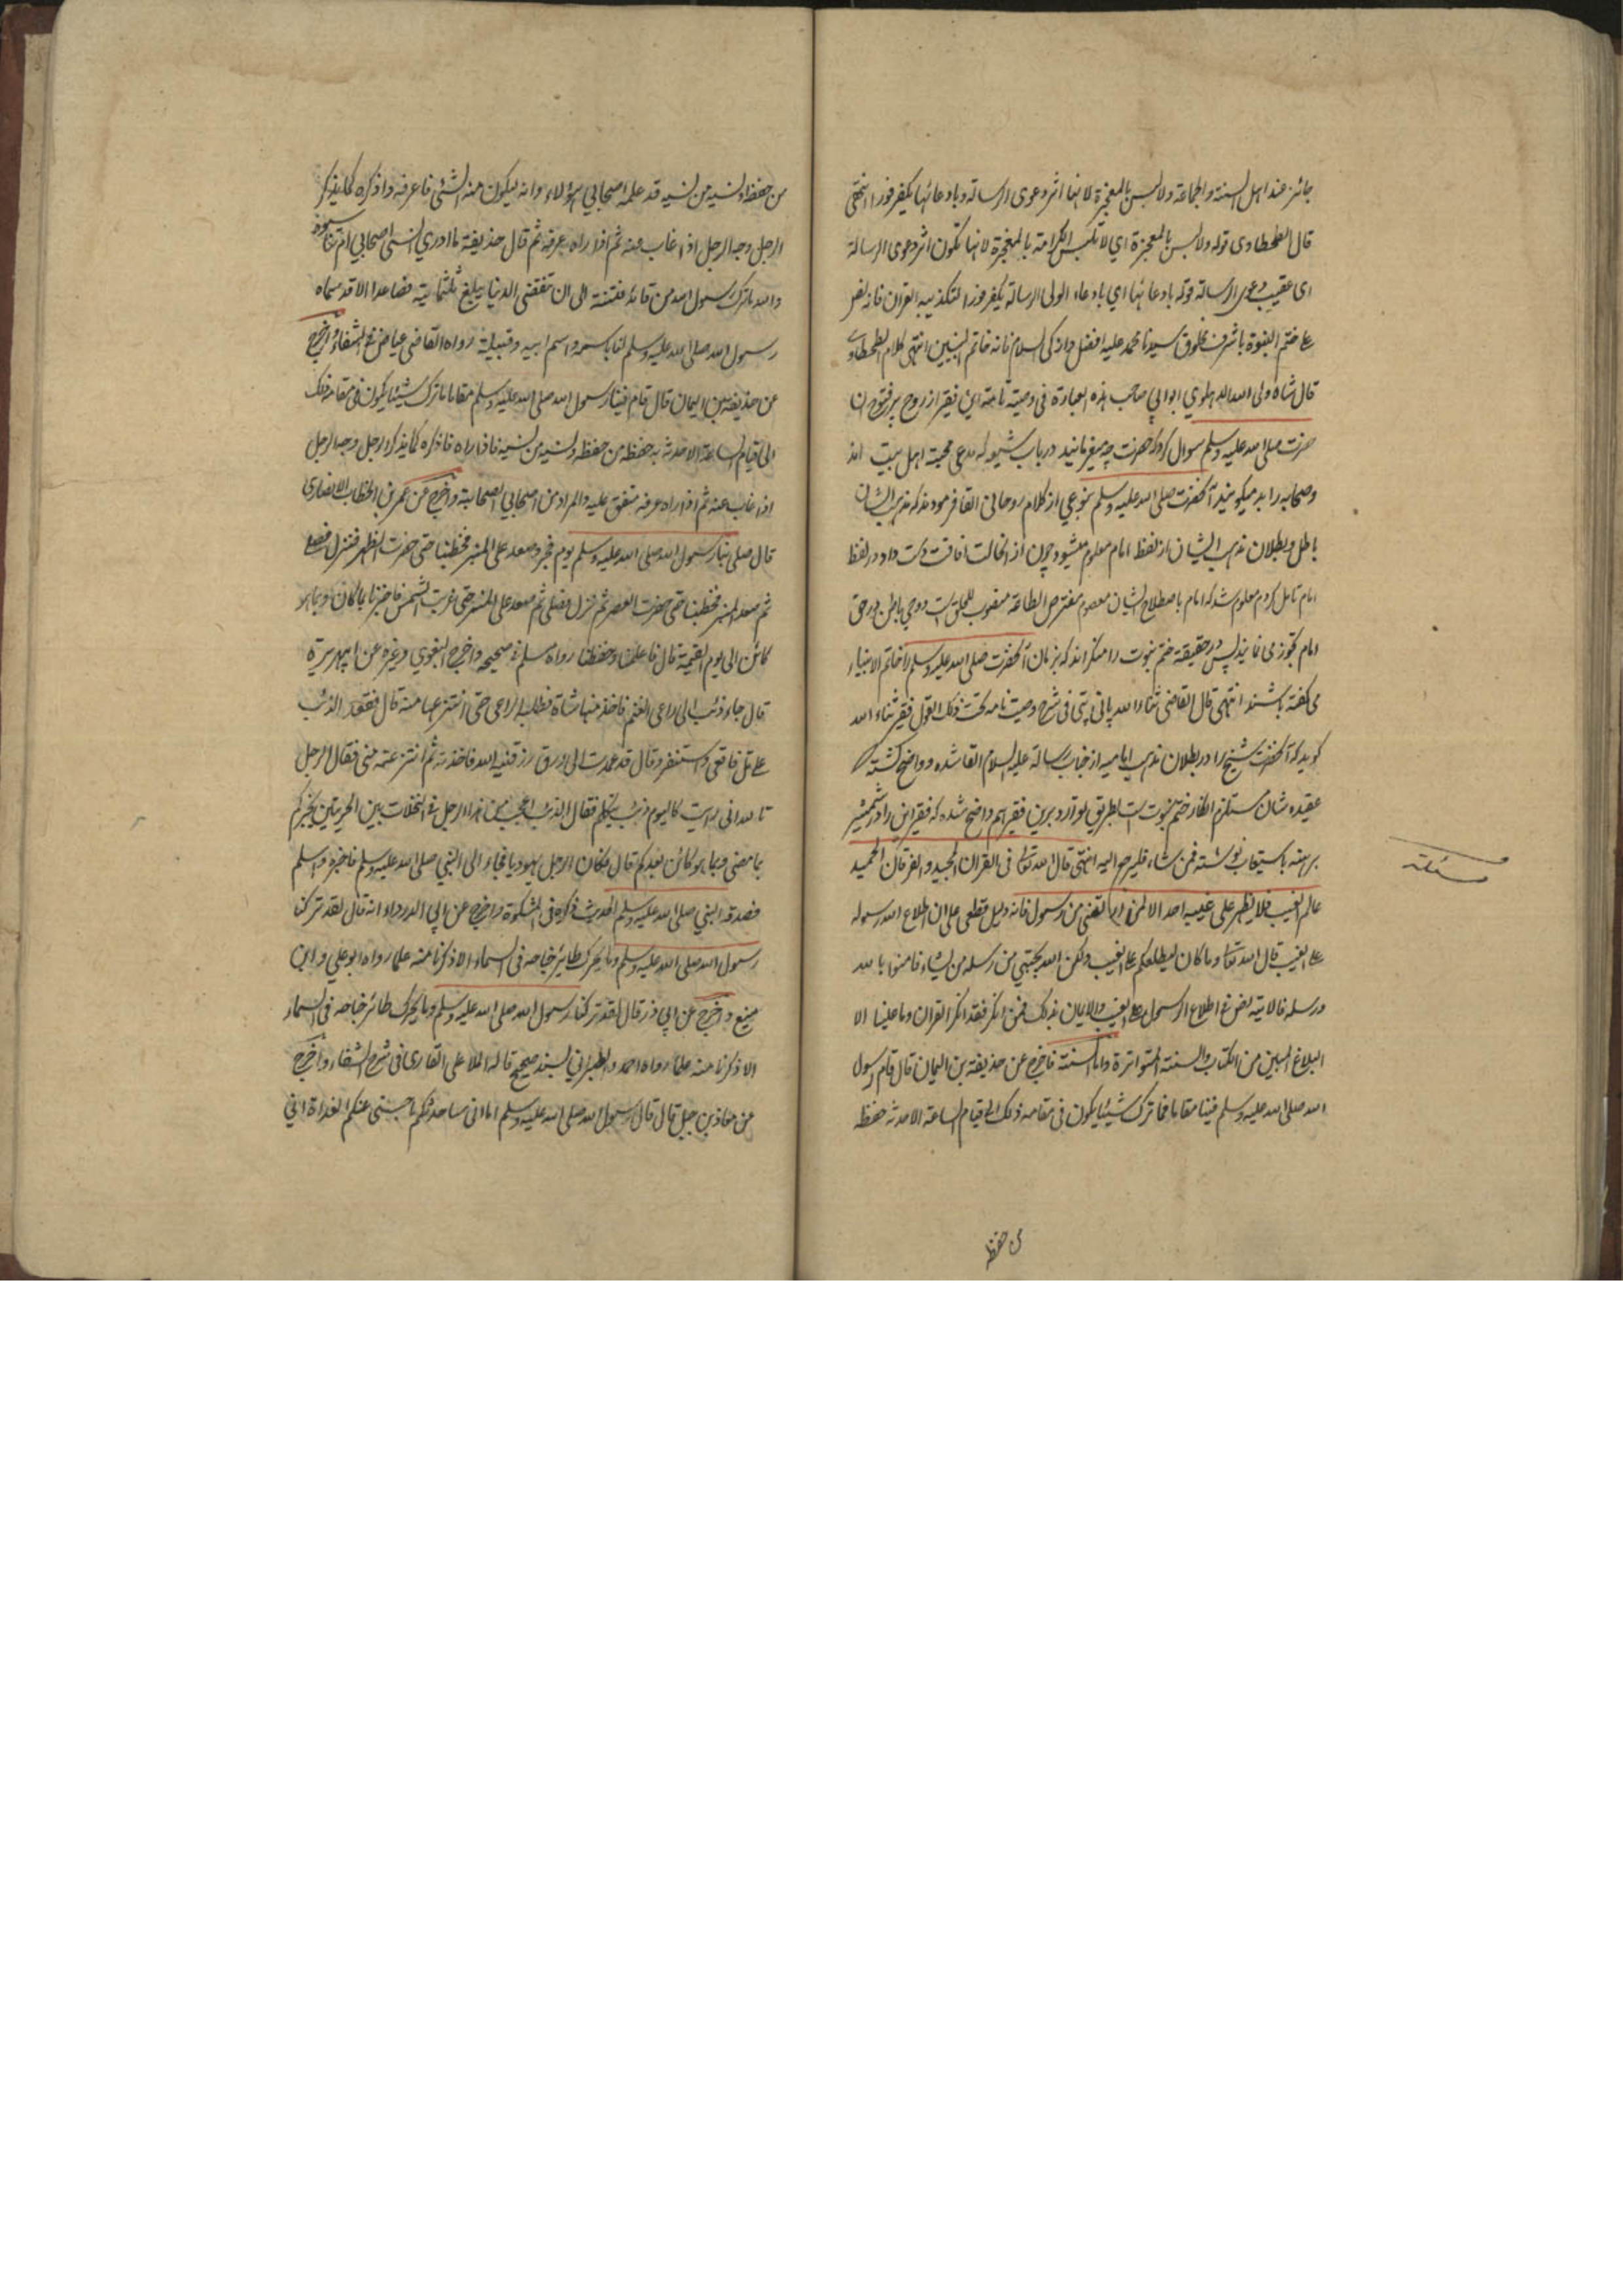 جائز عند اهل السنة والجماعة ولا لبس بالمعجزة لانها اثر دعوى الرسالة وبادعائها يكفر فورا انتهى
قال الطحطاوى قوله ولا لبس بالمعجزة اي لا تلتبس الكرامة بالمعجزة لانها تكون اثر دعوى الرسالة
اى عقيب دعوى الرسالة قوله بادعائها اي بادعاء الولى الرسالة يكفر فورا لتكذيبه القران فانه نص
على ختم النبوة باشرف مخلوق سيدنا محمد عليه افضل وازكى السلام فانه خاتم النبيين انتهى كلام الطحطاوى
قال شاه ولى الله الدهلوي ابوابي صاحب هذه العبارة فى وصيته نامته اين فقير از روح پر فتوح ان
حضرت صلى الله عليه وسلم سوال كرد كه حضرت چه ميفرمايند در باب شيعه كه مدعى محبت اهل بيت اند
وصحابه را بد ميگويند آنحضرت صلى الله عليه وسلم بنوعي از كلام روحانى القا فرمودند كه مذهب ايشان
باطل وبطلان مذهب ايشان از لفظ امام معلوم ميشود چون از انحالت افاقت دست داد در لفظ
امام تامل كردم معلوم شد كه امام باصطلاح ايشان معصوم مفترض الطاعة منصوب للخلق است ووحي باطن در حق
امام تجويز مى نمايند پس در حقيقة ختم نبوت را منكر اند كه بزبان آنحضرت صلى الله عليه وسلم را خاتم الانبياء
مى گفته باشند انتهى قال القاضى ثناء الله پانى پتى فى شرح وصيت نامه تحت ذلك القول فقير ثناء الله
گويد كه آنحضرت شيخ را در بطلان مذهب اماميه از جناب رسالة عليه السلام القا شده وواضح گشته كه
عقيده شان مستلزم انكار ختم نبوت است بطريق توارد برين فقير هم واضح شده كه فقير اين را در شمشير
برهنه باستيعاب نوشته فمن شاء فليرجع اليه انتهى قال الله تعالى فى القران المجيد والفرقان الحميد
عالم الغيب فلا يظهر على غيبه احدا الا لمن ارتضى من رسول فانه دليل قطعى على ان اطلاع الله رسوله
على الغيب قال الله تعالى وما كان ليطلعكم على الغيب ولكن الله يجتبي من رسله من يشاء فامنوا بالله
ورسله فالاية نص فى اطلاع الرسول على الغيب والايمان بذلك فمن انكر فقد انكر القران وما علينا الا
البلاغ المبين من الكتاب والسنة المتواترة واما السنة فاخرج عن حذيفة بن اليمان قال قام رسول
الله صلى الله عليه وسلم فينا مقاما فما ترك شيئا يكون فى مقامه ذلك الى قيام الساعة الا حدثه حفظه
من حفظ
مسئلة
من حفظه ونسيه من نسيه قد علمه اصحابي هؤلاء وانه ليكون منه الشئ فاعرفه واذكره كما يذكر
الرجل وجه الرجل اذا غاب عنه ثم اذا راه عرفه ثم قال حذيفة ما ادري انسى اصحابي ام تناسوه
والله ما ترك رسول الله من قائد فتنة الى ان تنقضى الدنيا يبلغ ثلثمائة فصاعدا الا قد سماه
رسول الله صلى الله عليه وسلم لنا باسمه واسم ابيه وقبيلته رواه القاضى عياض فى الشفاء واخرج
عن حذيفة بن اليمان قال قام فينا رسول الله صلى الله عليه وسلم مقاما ما ترك شيئا يكون فى مقامه ذلك
الى قيام الساعة الا حدث به حفظه من حفظه ونسيه من نسيه فاذا راه فاذكره كما يذكر الرجل وجه الرجل
اذا غاب عنه ثم اذا راه عرفه متفق عليه والمراد من اصحابي الصحابة واخرج عن عمر بن الخطاب الانصارى
قال صلى بنا رسول الله صلى الله عليه وسلم يوم فجر وصعد على المنبر فخطبنا حتى حضرت الظهر فنزل فصلى
ثم صعد المنبر فخطبنا حتى حضرت العصر ثم نزل فصلى ثم صعد على المنبر حتى غربت الشمس فاخبرنا بما كان وبما هو
كائن الى يوم القيمة قال فاعلمنا وحفظنا رواه مسلم فى صحيحه واخرج البغوي وغيره عن ابيهريرة
قال جاء ذئب الى راعى الغنم فاخذ منها شاة فطلبه الراعى حتى انتزعها منه قال فقعد الذئب
على تل فاقعى واستنفر وقال قد عمدت الى رزق رزقنيه الله فاخذته ثم انتزعته منى فقال الرجل
تالله انى رايت كاليوم ذئب يتكلم فقال الذئب اعجب من هذا رجل فى النخلات بين الحرتين يخبركم
بما مضى وبما هو كائن بعدكم قال فكان الرجل يهوديا فجاء الى النبي صلى الله عليه وسلم فاخبره واسلم
فصدقه النبي صلى الله عليه وسلم الحديث ذكره فى المشكوة واخرج عن ابي الدرداء انه قال لقد تركنا
رسول الله صلى الله عليه وسلم وما يحرك طائر جناحه فى السماء الا ذكرنا منه علما رواه ابو علي وابن
منيع واخرج عن ابي ذر قال لقد تركنا رسول الله صلى الله عليه وسلم وما يحرك طائر جناحه فى السماء
الا ذكرنا منه علما رواه احمد والطبراني بسند صحيح قاله الملا على القارى فى شرح الشفاء واخرج
عن معاذ بن جبل قال قال رسول الله صلى الله عليه وسلم اما انى ساحدثكم ما حبسنى عنكم الغداة انى